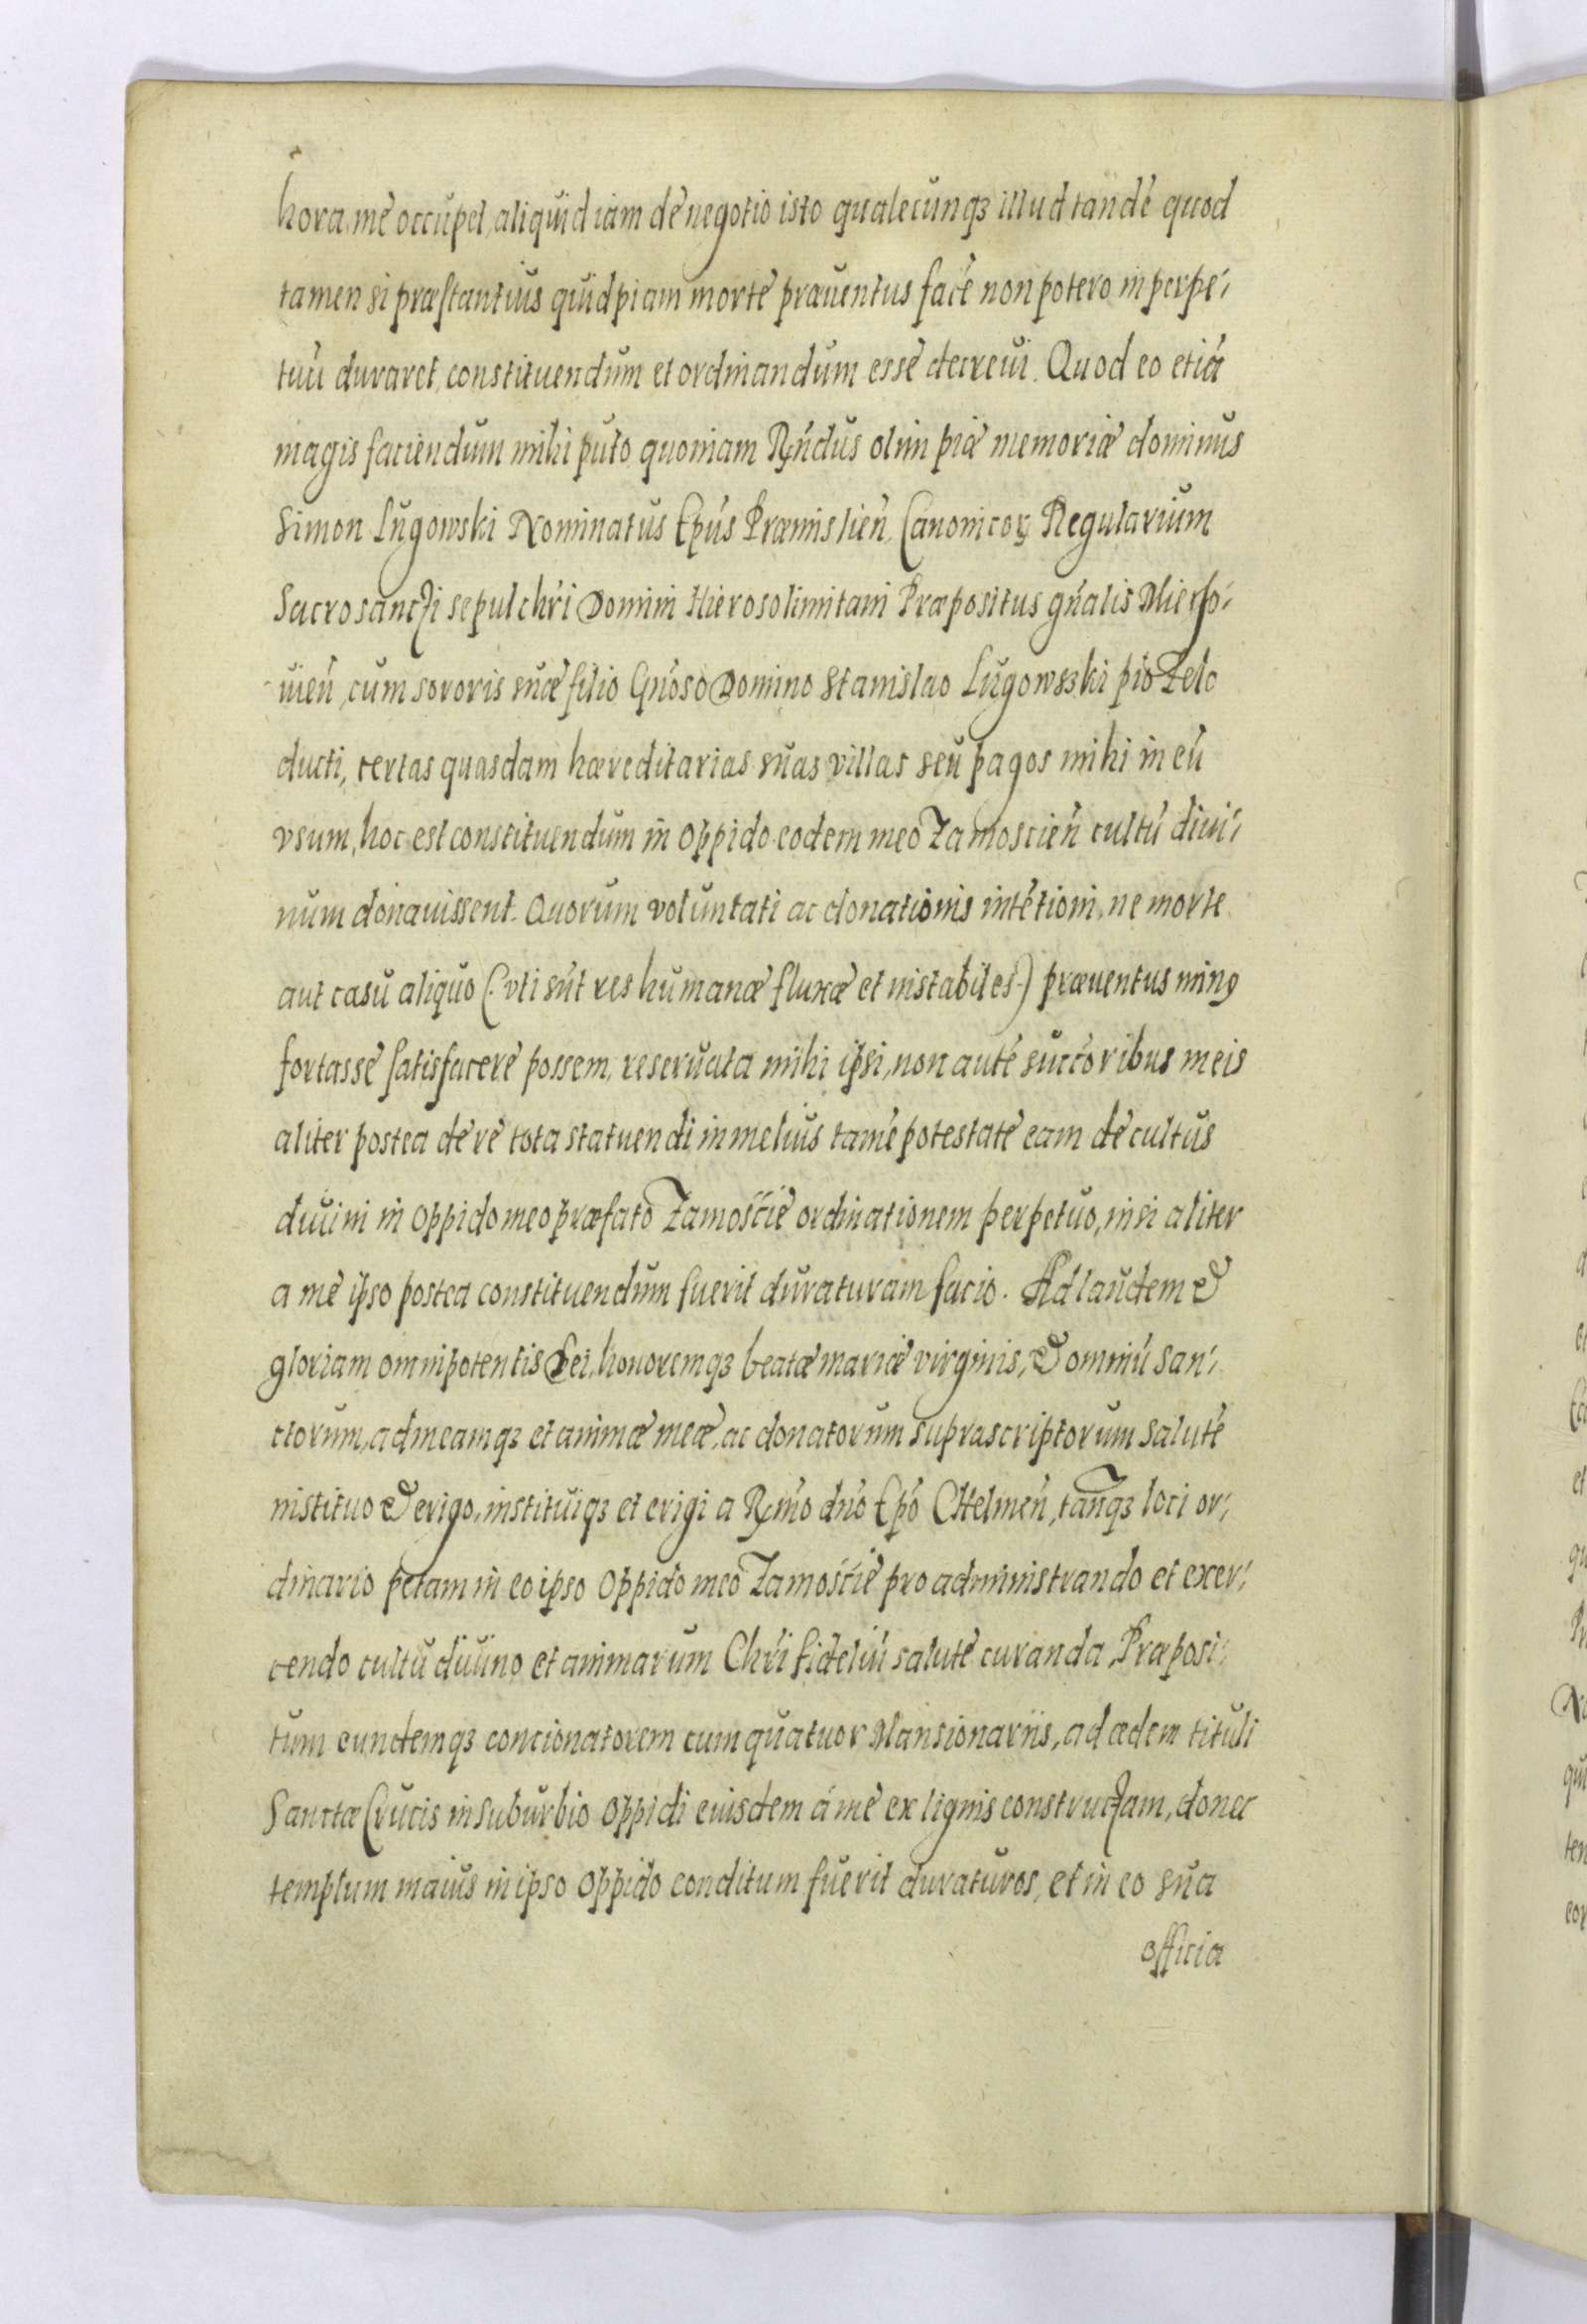 hora me occupet, aliquid iam de negotio isto qualecunqꝫ illud tandē quod
tamen si præstantius quidpiam morte præuentus facē non potero in perpe-
tuū duraret, constituendum et ordinandum esse decreui. Quod eo etiā
magis faciendum mihi puto quoniam Rn̄dus olim piæ memoriæ dominus
Simon Lugowski Nominatus Ep̄us Præmislien̄, Canonicoꝝ Regularium
Sacrosancti sepulchri Domini Hierosolimitani Præpositus gn̄alis Miecho-
uien̄, cum sororis suæ filio Gn̄oso Domino Stanislao Lugowszki pio Zelo
ducti, certas quasdam hæreditarias suas villas seu pagos mihi in eū
vsum, hoc est constituendum in oppido eodem meo Zamoscien̄ cultū diui-
num donauissent. Quorum voluntati ac donationis intētioni, ne morte
aut casu aliquo (: vti sūt res humanæ fluxæ et instabiles :) præuentus minꝯ
fortasse satisfacere possem, reseruata mihi ipsi, non autē succ̄oribus meis
aliter postea de re tota statuendi in melius tamē potestatē eam de cultus
diuini in oppido meo præfato Zamosćie ordinationem perpetuo, nisi aliter
a me ipso postea constituendum fuerit duraturam facio. Ad laudem &
gloriam omnipotentis Dei, honoremqꝫ beatæ mariæ virginis, & omniū san-
ctorum, ad meamqꝫ et animæ meæ, ac donatorum suprascriptorum salutē
instituo & erigo, instituiqꝫ et erigi a Rm̄o dn̄o Ep̄o CHelmen̄, tanqꝫ loci or-
dinario petam in eo ipso oppido meo Zamosćie pro administrando et exer-
cendo cultu diuino et animarum Chr̄i fideliū salute curanda, Præposi-
tum eundemqꝫ concionatorem cum quatuor Mansionariis, ad ædem tituli
Sanctæ Crucis in suburbio oppidi euisdem á me ex lignis constructam, donec
templum maius in ipso oppido conditum fuerit duraturos, et in eo sua
officia